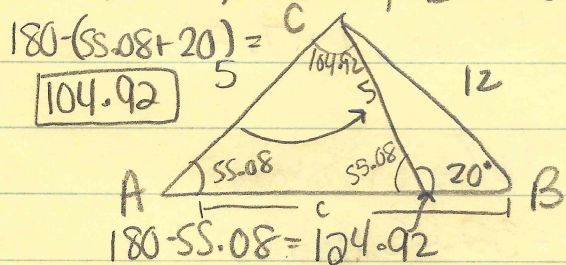 180-(55.08+20) =
104.92
C
5
104.92
5
12
55.08
55.08
20°
A
B
c
180-55.08=124.92